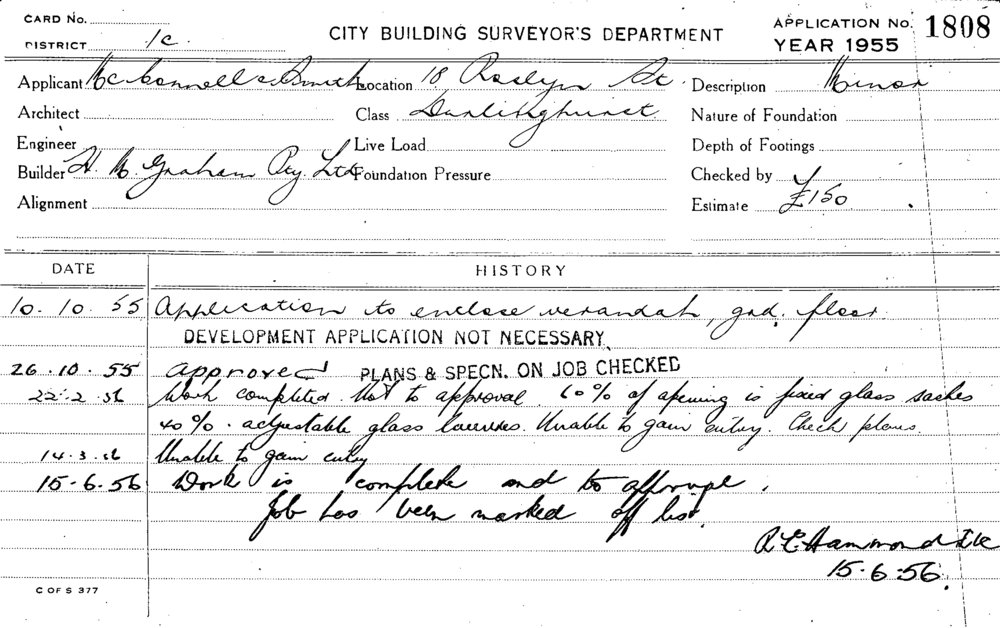 CARD No.
DISTRICT 1c.
CITY BUILDING SURVEYOR'S DEPARTMENT
APPLICATION No. 1808
YEAR 1955
Applicant McConnell & Smith Location 18 Roslyn St. Description Minor
Architect Class Darlinghurst Nature of Foundation
Engineer Live Load Depth of Footings
Builder H. M. Graham Pty. Ltd Foundation Pressure Checked by
Alignment Estimate £150
DATE HISTORY
10. 10. 55 Application to enclose verandah, grd. floor.
DEVELOPMENT APPLICATION NOT NECESSARY.
26.10.55 Approved PLANS & SPECN. ON JOB CHECKED
22.2.56 Work completed. Not to approval 60% of opening is fixed glass sashes
40% . adjustable glass louvres. Unable to gain entry. Check plans.
14.3.56 Unable to gain entry
15.6.56 Work is complete and to approval.
Job has been marked off list.
R E Hammond
15.6.56.
C OF S 377